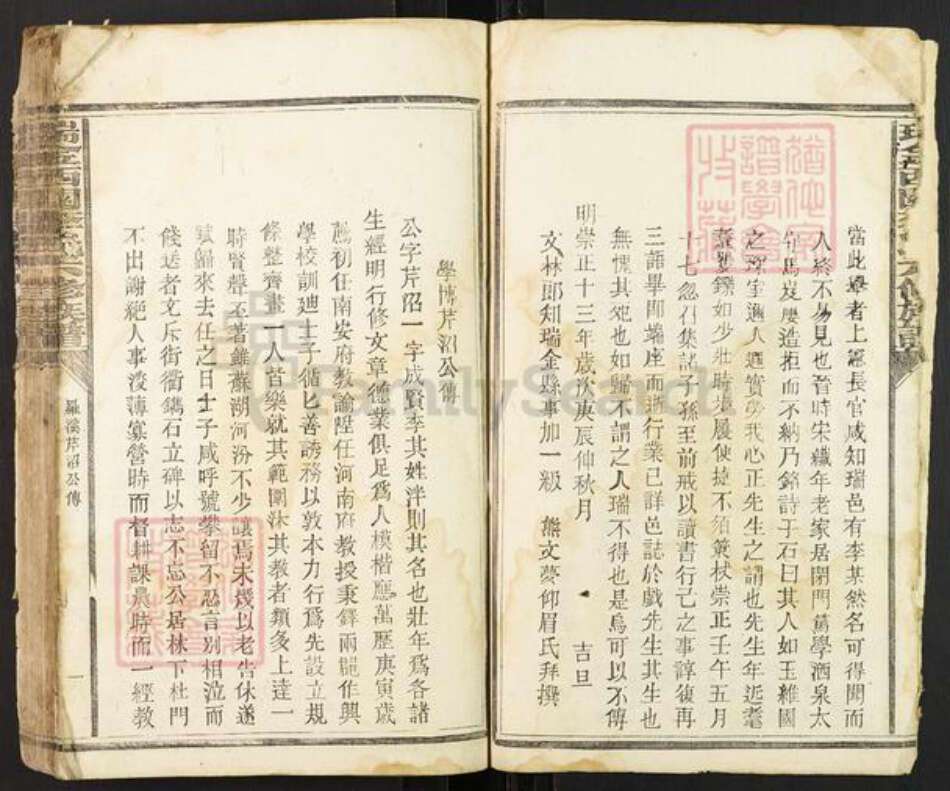 當此舉者上憲長官咸知瑞邑有李某然名可得聞而
人終不易見也晉時宋纖年老家居閉門篤學酒泉太
守馬岌屢造拒而不納乃銘詩于石曰其人如玉維國
之琛室邇人遐實勞我心正先生之謂也先生年近耄
耋矍鑠如少壯時步履使捷不須策杖崇正壬午五月
十七忽召集諸子孫至前戒以讀書行己之事諄復再
三誦畢即端座而逝行業已詳邑誌於戲先生其生也
無愧其死也如歸不謂之人瑞不得也是烏可以不傳
明崇正十三年歲次庚辰仲秋月 吉旦
文林郎知瑞金縣事加一級 熊文夢仰眉氏拜撰
學博芹沼公傳
公字芹沼一字成賢李其姓泮則其名也壯年為各諸
生經明行修文章德業俱足為人模楷應萬歷庚寅歲
薦初任南安府教諭陞任河南府教授秉鐸兩龍作興
學校訓廸士子循匕善誘務以敦本力行為先設立規
條整齊畫一人皆樂就其範圍沐其教者類多上達一
時賢聲丕著雖蘇湖河汾不少讓焉未幾以老告休遂
賦歸來去任之日士子咸呼號攀留不忍言別相泣而
餞送者充斥街衢鐫石立碑以志不忘公居林下杜門
不出謝絕人事澹薄寡營時而督耕課農時而一經教
羅溪芹沼公傳
一
FamilySearch